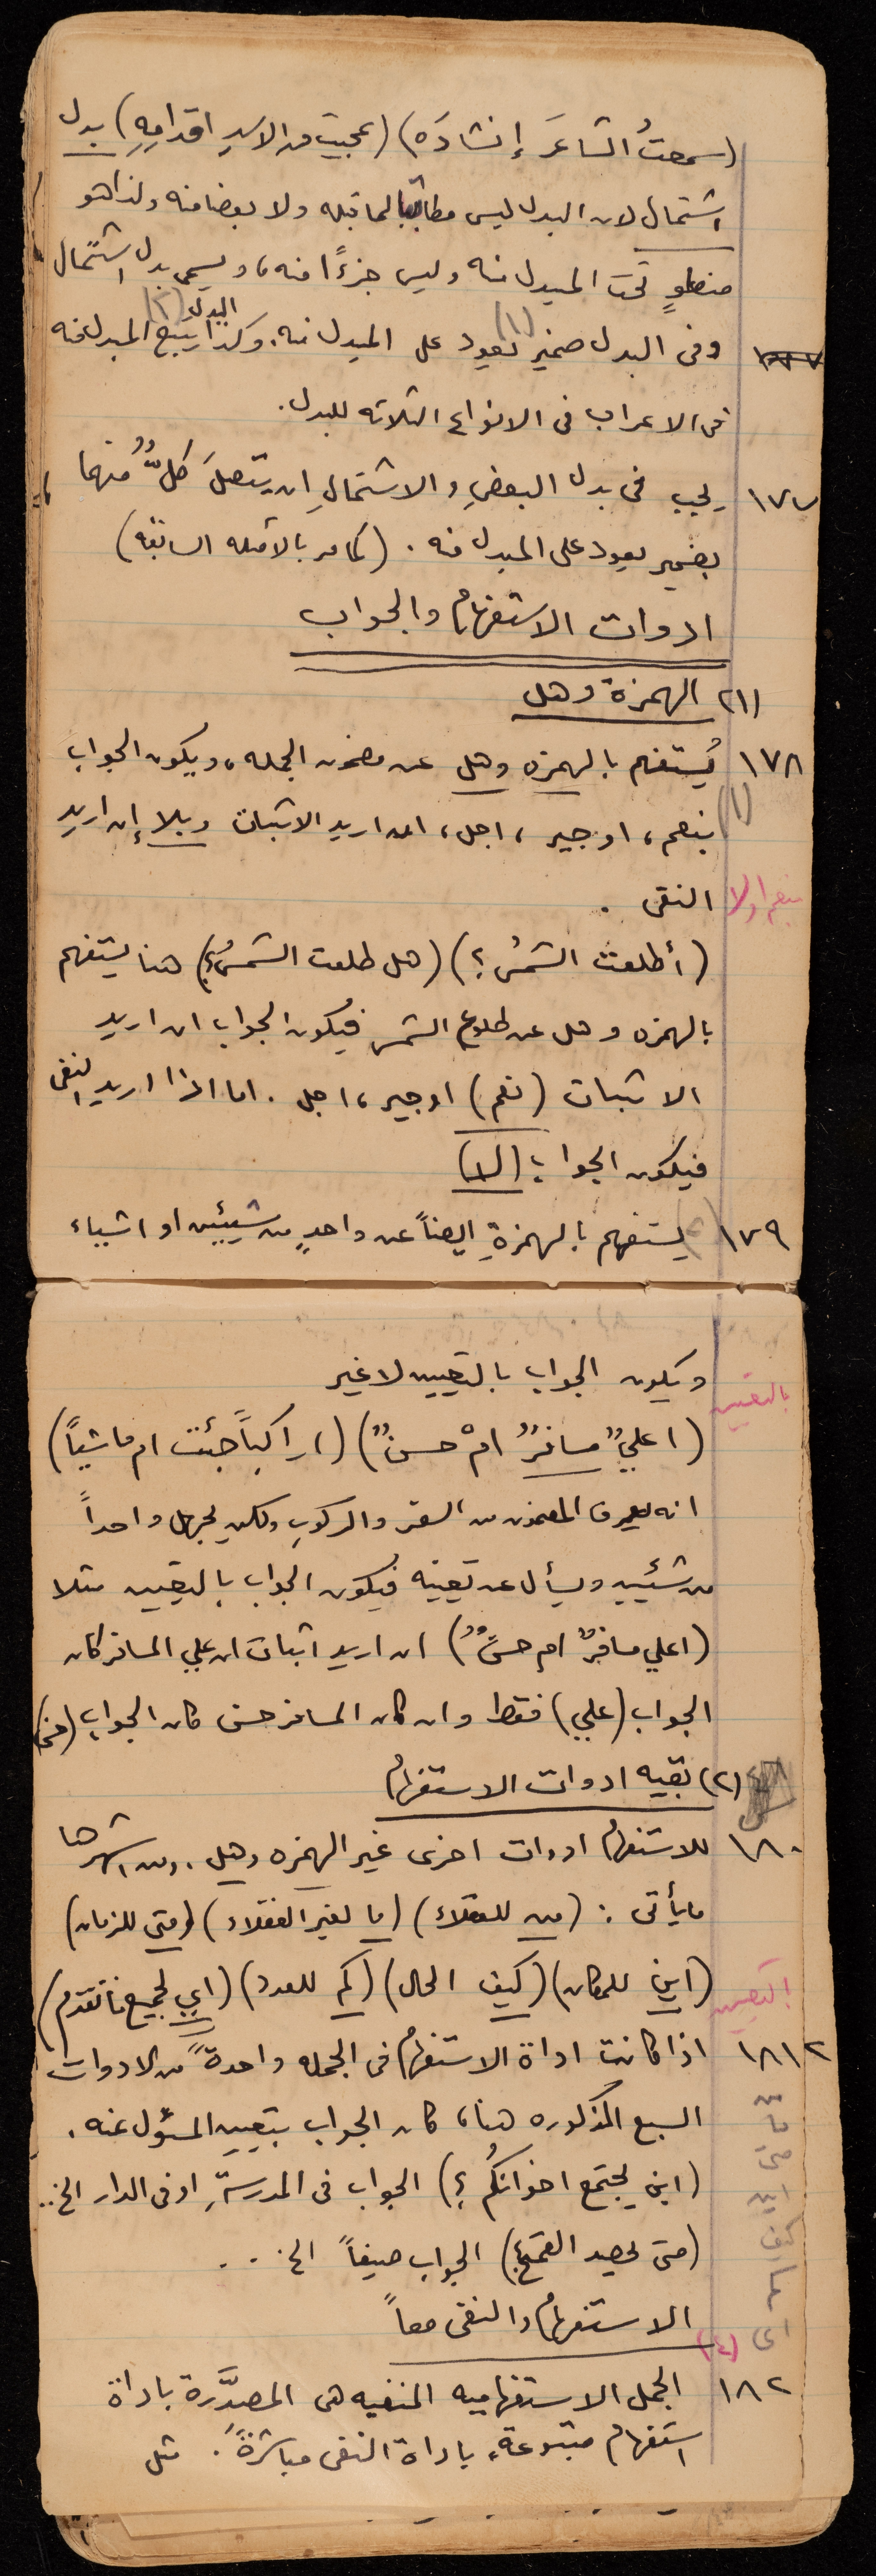 (سمعتُ الشاعرَ إنشادَه) (عجبت من الاسدِ اقدامِهِ) بدل
اشتمال لان البدل ليس مطابقا لما قبله ولا بعضا منه ولذا هو
منطوٍ تحت المبدل منه وليس جزءًا منه، ويسمى بدل اشتمال
وفى البدل ضمير (١) يعود على المبدل منه. وكذا يتبع البدل (٢) المبدل منه
فى الاعراب فى الانواع الثلاثه للبدل.
١٧٧ يجب فى بدل البعضِ والاشتمالِ ان يتصلَ كلٌّ منهما
بضمير يعود على المبدل منه. (كما مر بالأمثله السابقه)
ادوات الاستفهام والجواب
(١) الهمزة وهل
١٧٨ يُستفهم بالهمزه وهل عن مضمون الجمله، ويكون الجواب
(١) بنعم، او جير، اجل، ان اريد الاثبات وبلا إن اريد
بنعم اولا النفى.
(أطلعت الشمسُ؟) (هل طلعت الشمسُ؟) هنا يستفهم
بالهمزه وهل عن طلوع الشمس فيكون الجواب ان اريد
الاثبات (نعم) او جير، اجل. اما اذا اريد النفى
فيكون الجواب (لا)
١٧٩ يستفهم بالهمزةِ ايضاً عن واحدٍ من شيئين او اشياء
ويكون الجواب بالتعيين لا غير
بالتعيين
(اعليٌ مسافرٌ امْ حسنٌ) (اراكباً جئت ام ماشياً)
انه يعرف المضمون من السفر والركوبِ ولكن يجهل واحداً
من شيئين ويسأل عن تعيينه فيكون الجواب بالتعيين مثلا
(اعلي مسافرٌ ام حسنٌ) ان اريد اثبات ان علي المسافر كان
الجواب (علي) فقط وان كان المسافر حسن كان الجواب (حسن)
(٢) بقيه ادوات الاستفهام
١٨٠ للاستفهام ادوات اخرى غير الهمزه وهل. ومن اشهرها
ما يأتى: (من للعقلاء) (ما لغير العقلاء) (متى للزمان)
(اين للمكان) (كيف الحال) (كم للعدد) (اي لجميع ما تقدم)
التعيين
١٨١ اذا كانت اداة الاستفهام فى الجمله واحدةً من الادوات
السبع المذكوره هنا، كان الجواب بتعيين المسؤل عنه.
(اين يجتمع اخوانكُم؟) الجواب فى المدرسةِ او فى الدار الخ..
(متى يحصد القمح؟) الجواب صيفاً الخ...
من ما متى اين كيف كم اى
الاستفهام والنفى معاً
١٨٢ الجمل الاستفهاميه المنفيه هى المصدَّرة باداة
استفهام متبوعةٍ باداة النفى مباشرةً. مثل